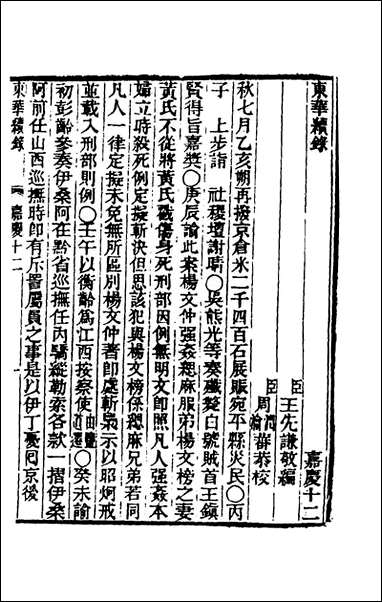 東華續錄
嘉慶十二
臣王先謙敬編
臣周潤蕃周瀹蕃恭校
秋七月乙亥朔再撥京倉米二千四百石展賑宛平縣災民○丙
子上步詣社稷壇謝晴○吳熊光等奏殲斃白號賊首王鎮
賢得旨嘉獎○庚辰諭此案楊文仲強姦緦麻服弟楊文榜之妻
黃氏不從將黃氏戳傷身死刑部因例無明文即照凡人強姦本
婦立時殺死例定擬斬決但思該犯與楊文榜係緦麻兄弟若同
凡人一律定擬未免無所區別楊文仲著即處斬梟示以昭炯戒
並載入刑部則例○壬午以衡齡為江西按察使由鹽道遷○癸未諭
初彭齡參奏伊桑阿在黔省巡撫任內驕縱勒索各款一摺伊桑
阿前任山西巡撫時即有斥詈屬員之事是以伊丁憂囘京後
東華續錄
嘉慶十二
一